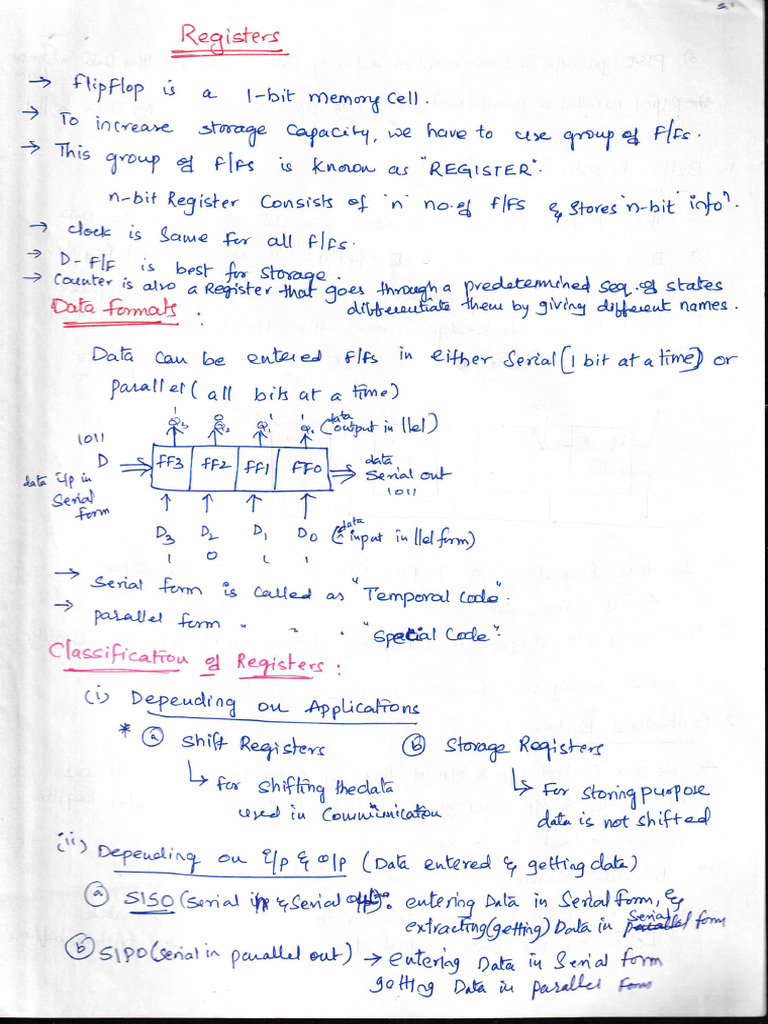 Registers
→ FlipFlop is a 1-bit memory cell.
→ To increase storage capacity, we have to use group of F/Fs.
→ This group of F/Fs is known as "REGISTER".
n-bit Register Consists of 'n' no. of F/Fs & stores 'n-bit' infoⁿ.
→ Clock is same for all F/Fs.
→ D-F/F is best for storage.
→ Counter is also a Register that goes through a predetermined seq. of states
differentiate them by giving different names.
Data formats :
Data can be entered F/Fs in either serial (1 bit at a time) or
parallel ( all bits at a time)
1 0 1 1 data
Q3 Q2 Q1 Q0 (output in llel)
1011
D FF3 FF2 FF1 FF0 data
Serial out
1011
data i/p in
Serial
form
D3 D2 D1 D0 (data input in llel form)
1 0 1 1
→ Serial form is called as "Temporal Code".
→ parallel form " " . "Special Code".
Classification of Registers :
(i) Depending on Applications
* (a) Shift Registers (b) Storage Registers
↳ for shifting the data ↳ For storing purpose
used in Communication data is not shifted
(ii) Depending on i/p & o/p (Data entered & getting data)
(a) SISO (Serial i/p & Serial o/p): entering Data in Serial form, &
extracting (getting) Data in Serial form
(b) SIPO (serial in parallel out) → entering Data in Serial form
getting Data in parallel form